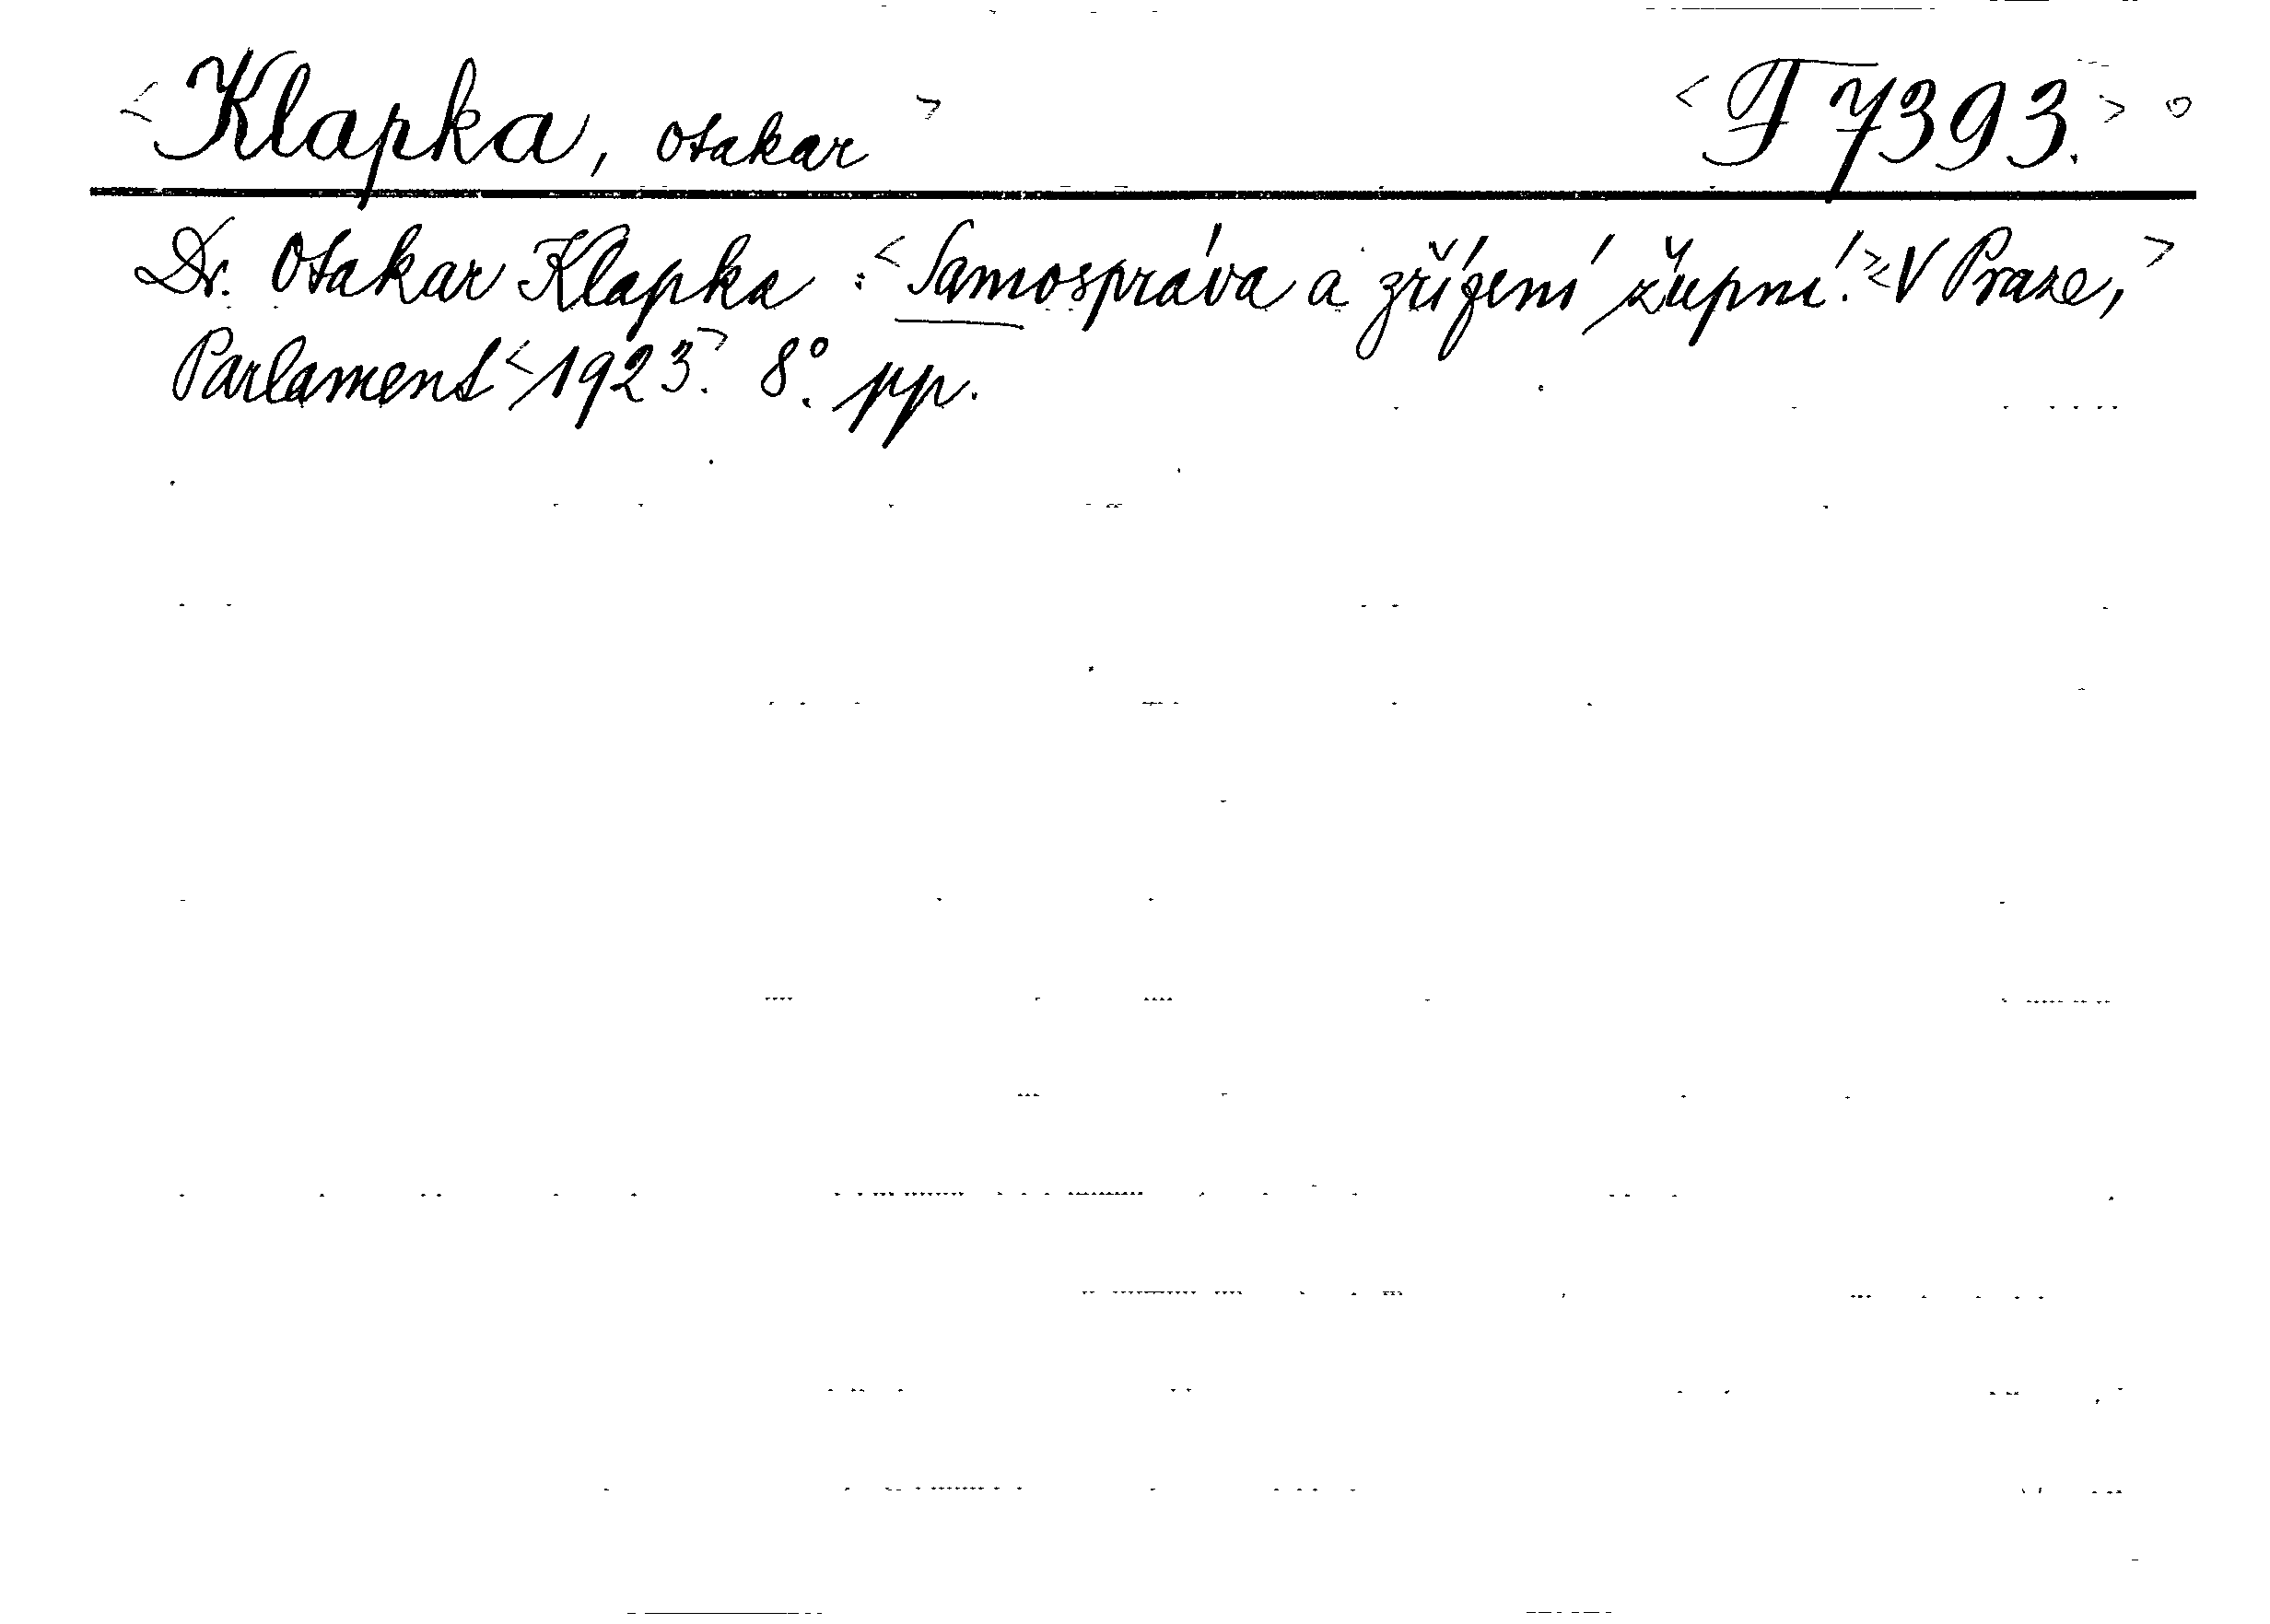 <Klapka, Otakar> <F 7393.> °
Dr. Otakar Klapka: <Samospráva a zřízení župní.> <V Praze,>
Parlament <1923.> 8°. pp.